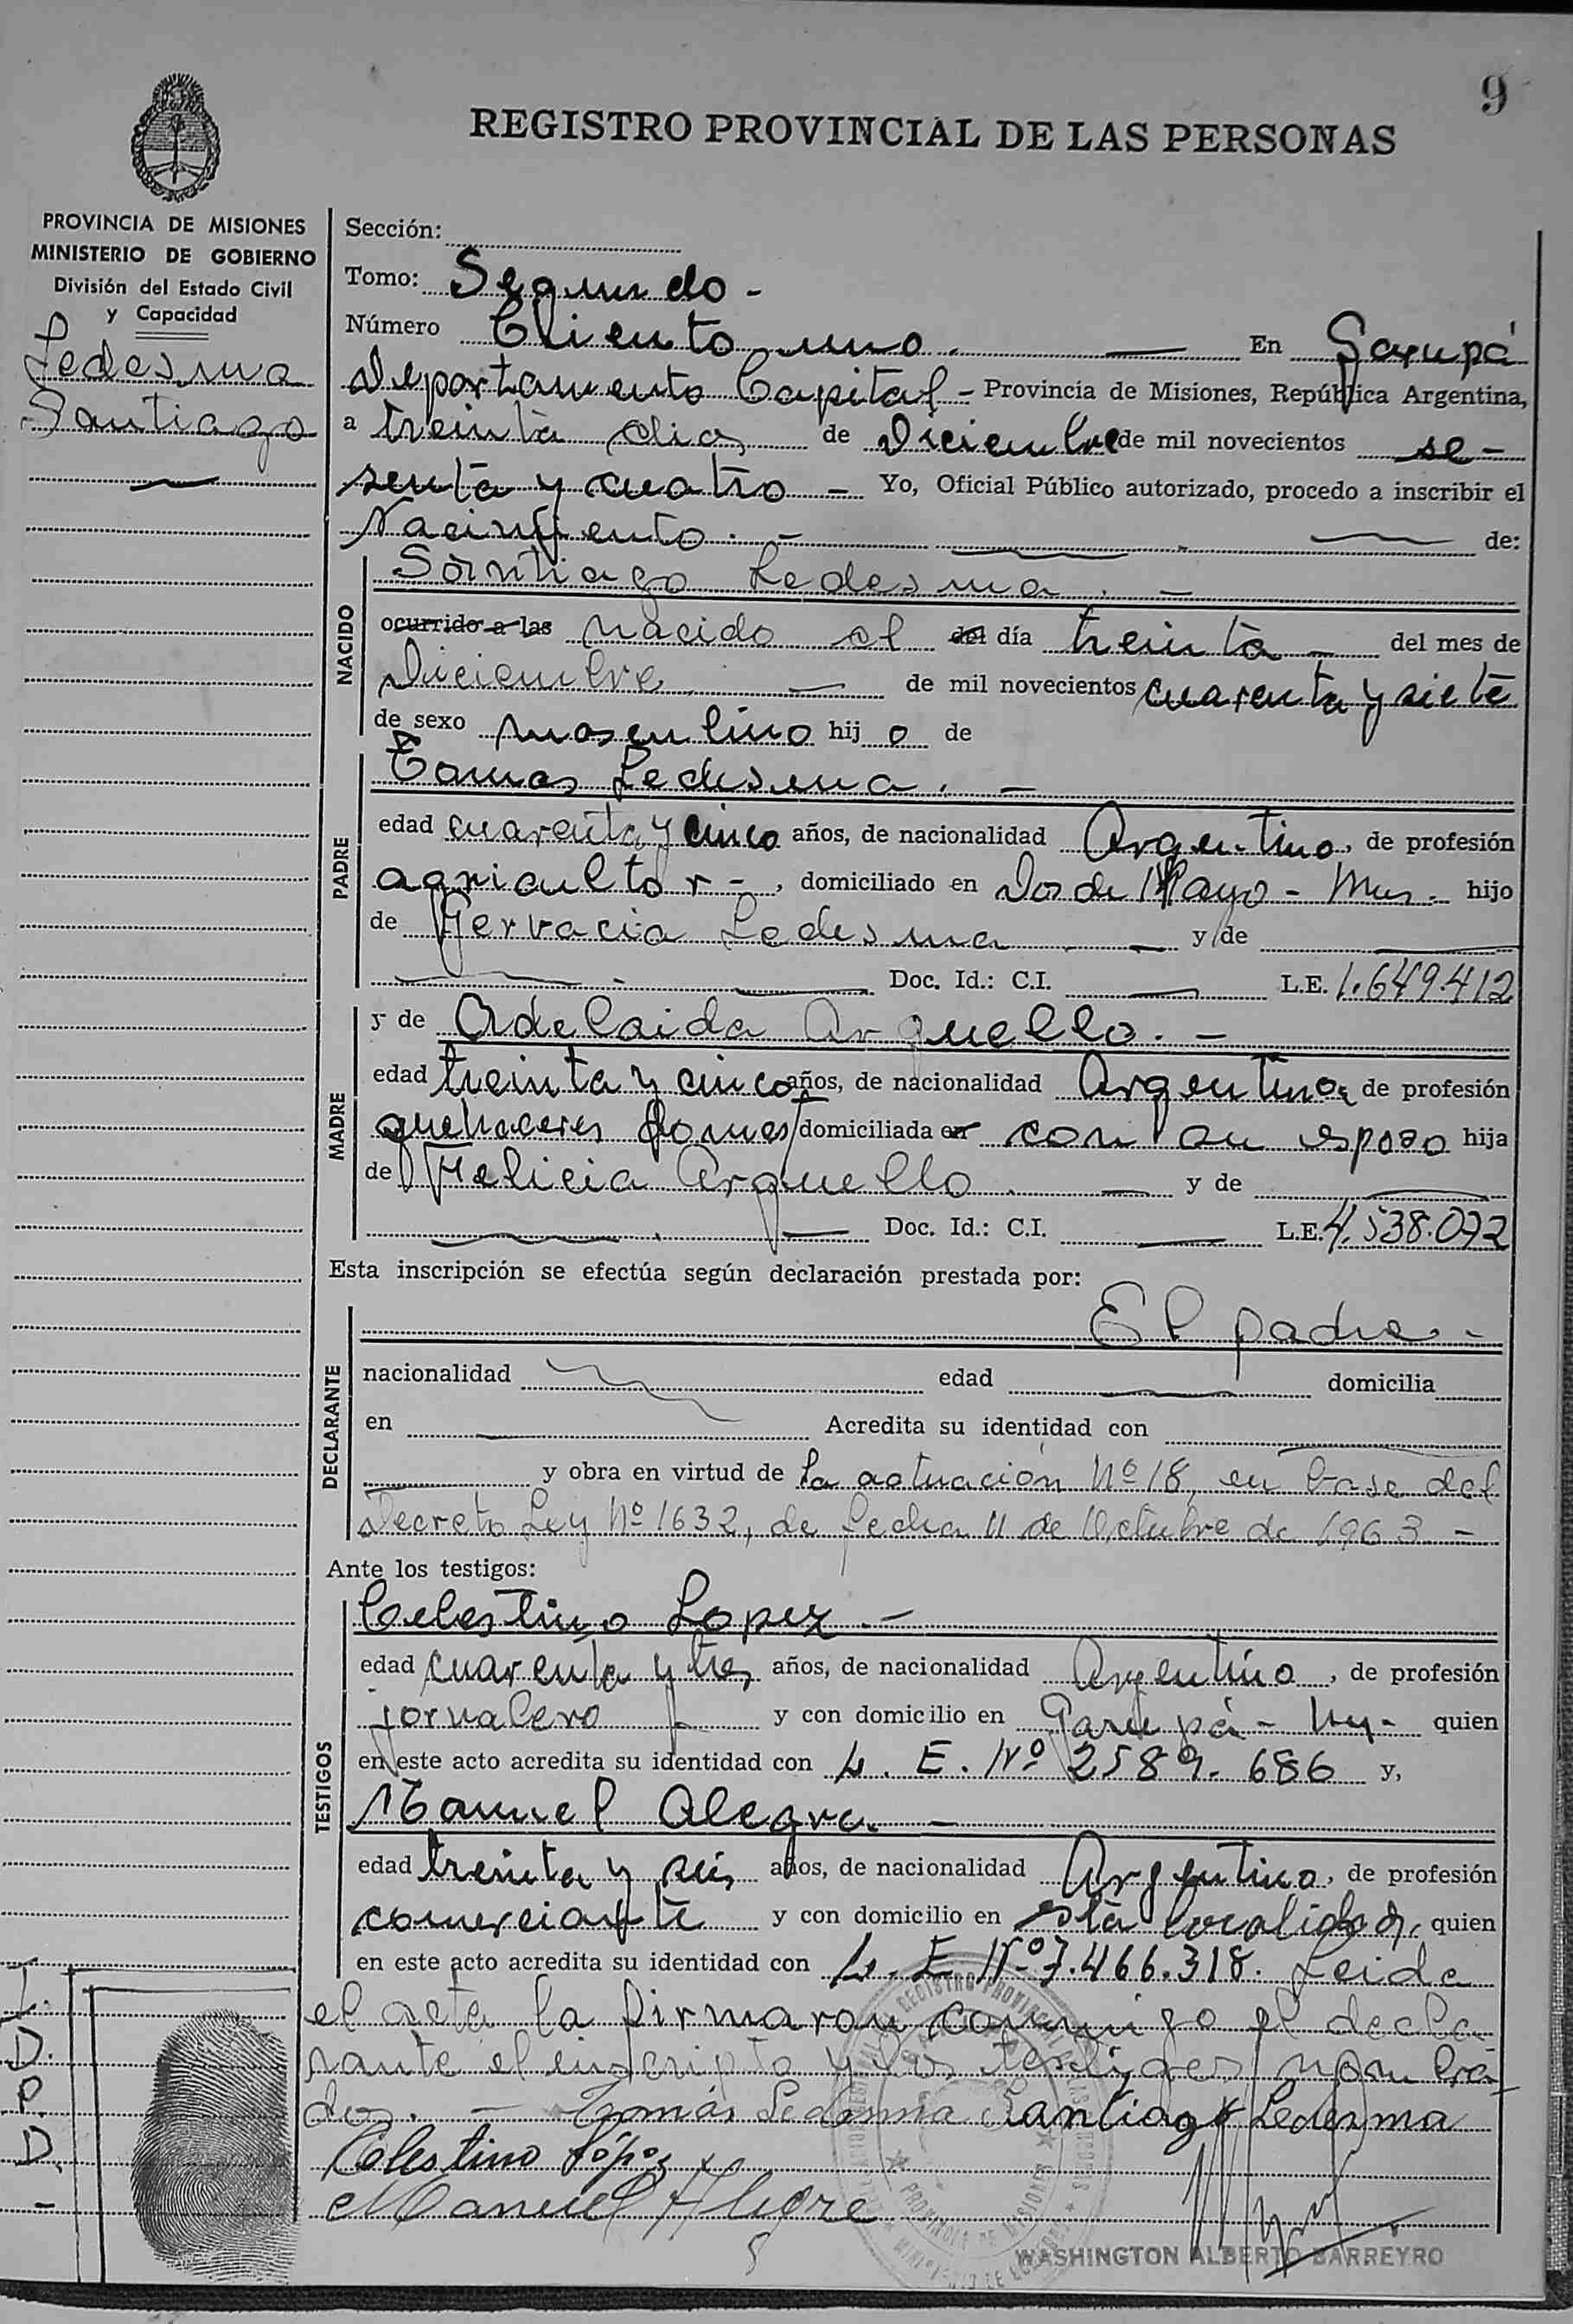 9
REGISTRO PROVINCIAL DE LAS PERSONAS
PROVINCIA DE MISIONES
MINISTERIO DE GOBIERNO
División del Estado Civil
y Capacidad
Ledesma
Santiago
Sección:
Tomo: Segundo -
Número Ciento uno. En Garupá
departamento Capital - Provincia de Misiones, República Argentina,
a treinta dias de Diciembre de mil novecientos se-
senta y cuatro - Yo, Oficial Público autorizado, procedo a inscribir el
Nacimiento. - de:
NACIDO
Santiago Ledesma. -
ocurrido a las nacido el del día treinta - del mes de
Diciembre de mil novecientos cuarenta y siete
de sexo masculino hij o de
PADRE
Tomas Ledesma. -
edad cuarenta y cinco años, de nacionalidad Argentino, de profesión
agricultor -, domiciliado en Dos de Mayo - Mnes. hijo
de Gervacia Ledesma y de
Doc. Id.: C.I. L.E. 1.649.412
MADRE
y de Adelaida Arguello. -
edad treinta y cinco años, de nacionalidad Argentina de profesión
quehaceres domest domiciliada en con su esposo hija
de Felicia Arguello. y de
Doc. Id.: C.I. L.E. 4.538.072
Esta inscripción se efectúa según declaración prestada por:
DECLARANTE
El padre. -
nacionalidad edad domicilia
en Acredita su identidad con
y obra en virtud de la actuación Nº 18, en base del
Decreto Ley Nº 1632, de fecha 11 de Octubre de 1963 -
Ante los testigos:
TESTIGOS
Celestino Lopez. -
edad cuarenta y tres años, de nacionalidad Argentino, de profesión
jornalero y con domicilio en Garupá - quien
en este acto acredita su identidad con L. E. Nº 2589.686 y,
Manuel Alegre. -
edad treinta y seis años, de nacionalidad Argentino, de profesión
comerciante y con domicilio en esta localidad, quien
en este acto acredita su identidad con L. E. Nº 7.466.318. Leida
el acta la firmaron conmigo el decla-
rante el inscripto y los testigos nombra-
dos. - Tomás Ledesma Santiago Ledesma
Celestino López
Manuel Alegre
I.
D.
P.
D.
-
WASHINGTON ALBERTO BARREYRO